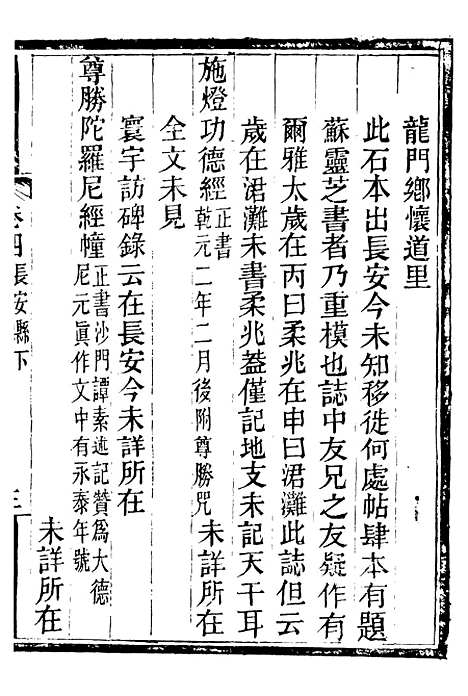 龍門鄉懷道里
此石本出長安今未知移徙何處帖肆本有題
蘇靈芝書者乃重模也誌中友兄之友疑作有
爾雅太歲在丙曰柔兆在申曰涒灘此誌但云
歲在涒灘未書柔兆葢僅記地支未記天干耳
施燈功德經 正書 乾元二年二月後附尊勝咒 未詳所在
全文未見
寰宇訪碑錄云在長安今未詳所在
尊勝陀羅尼經幢 正書沙門譚素述記贊爲大德 尼元眞作文中有永泰年號 未詳所在
卷四長安縣下
三